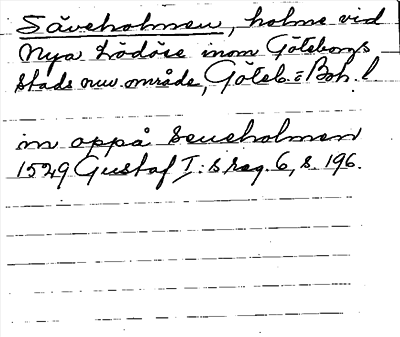 Säveholmen, holme vid
Nya Lödöse inom Göteborgs
stads nuv område, Göteb. o Boh. l
in oppå Seueholmen
1529 Gustaf I:s reg. 6, s. 196.